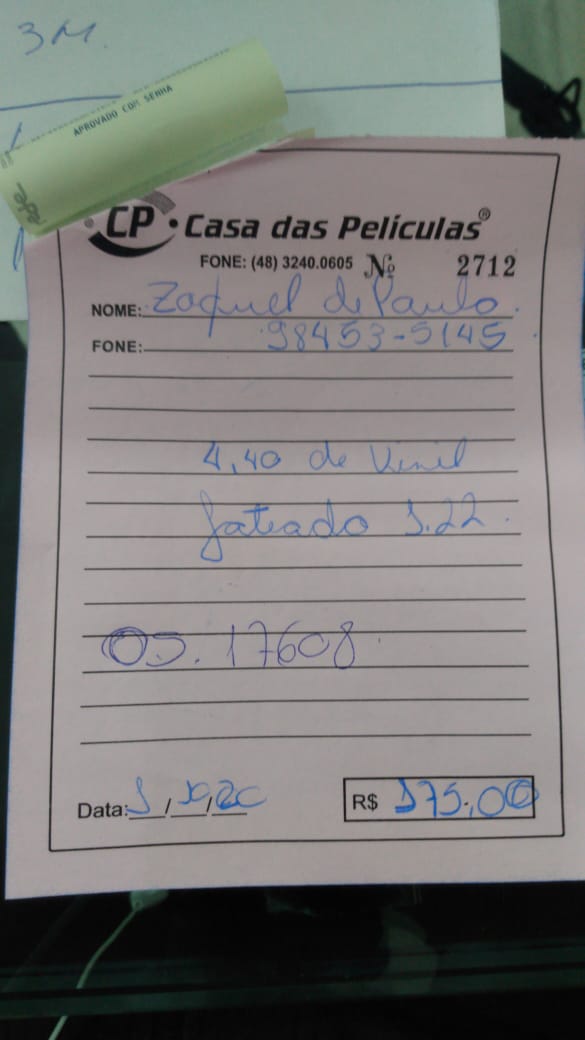 3M.
APROVADO COM SENHA
CP · Casa das Películas®
FONE: (48) 3240.0605 Nº 2712
NOME: Zaquel de Paulo.
FONE: 98453-5145
4,40 de Vinil
Jateado 1.22.
OS. 17608.
Data: 1 / 10 / 20 R$ 175,00